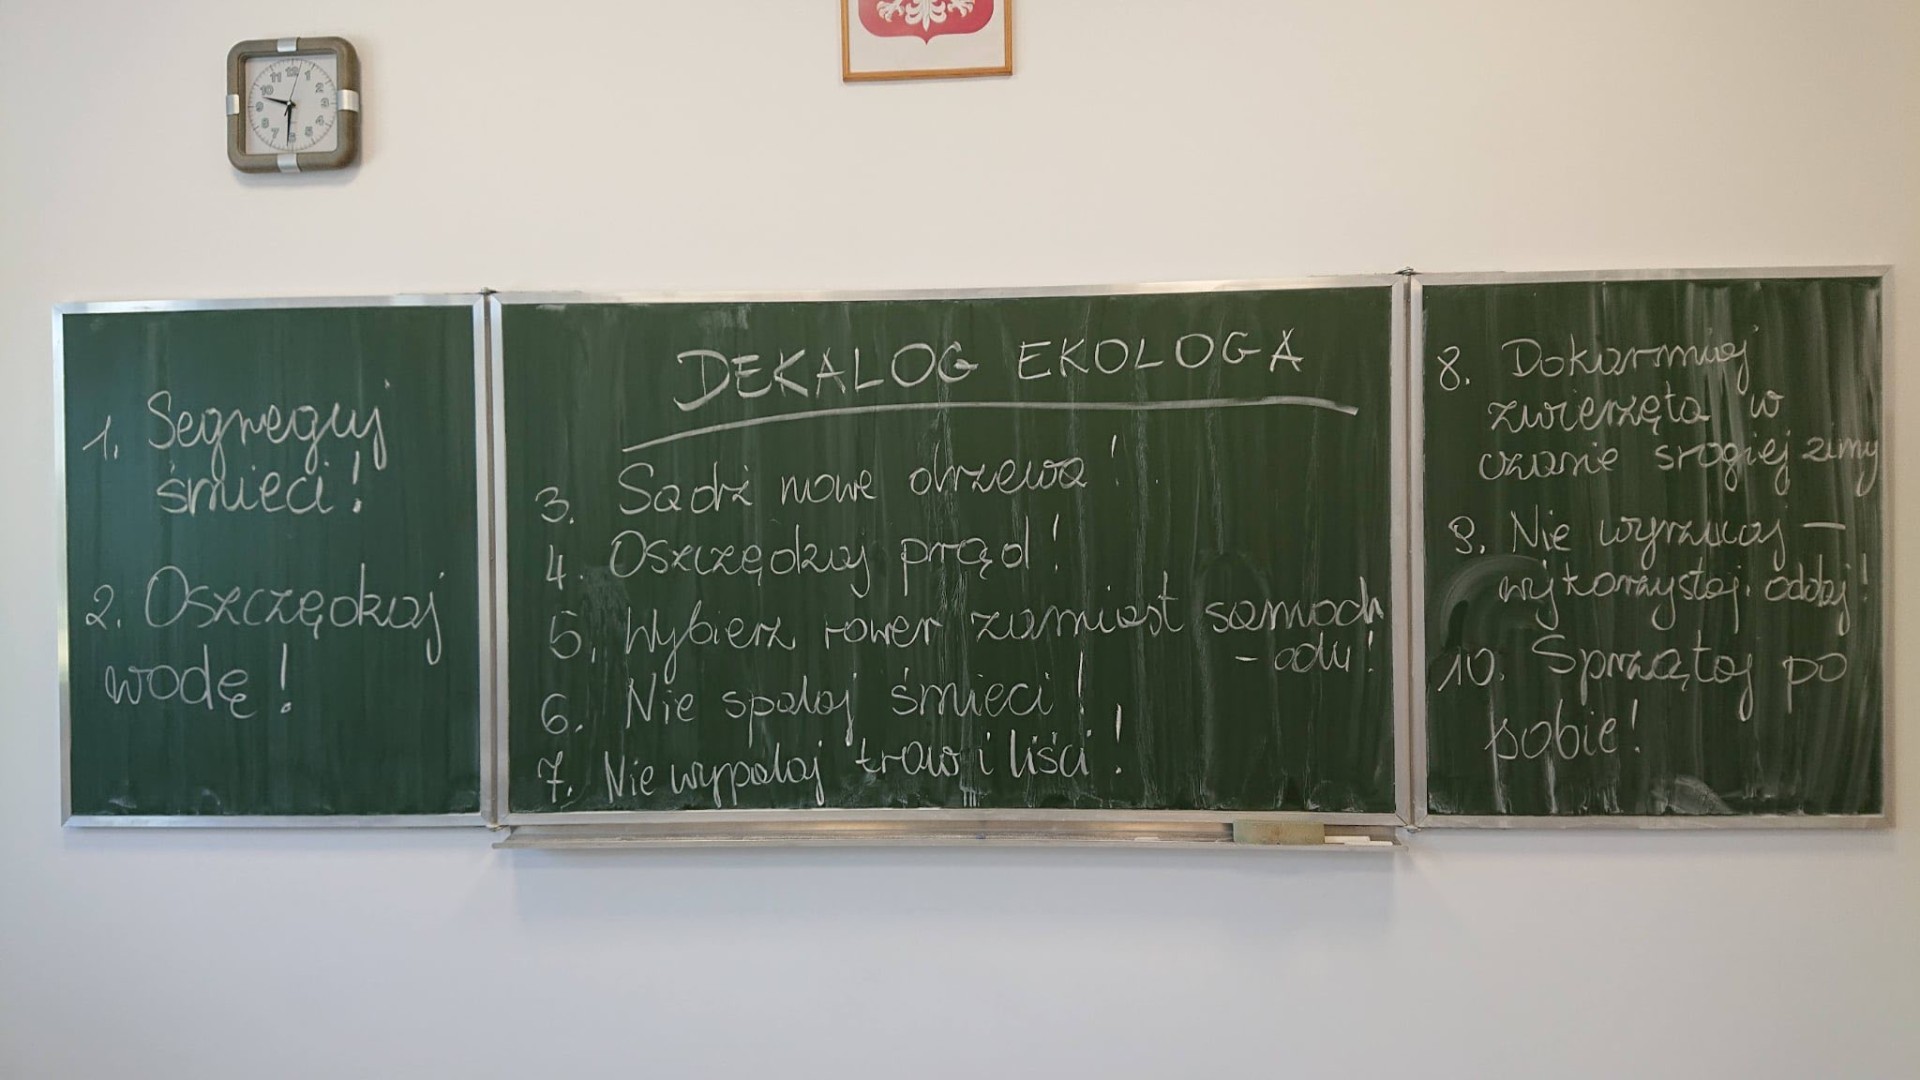 1. Segreguj
śmieci!
2. Oszczędzaj
wodę!
DEKALOG EKOLOGA
3. Sadź nowe drzewa!
4. Oszczędzaj prąd!
5. Wybierz rower zamiast samoch
- odu!
6. Nie spalaj śmieci!
7. Nie wypalaj traw i liści!
8. Dokarmiaj
zwierzęta w
czasie srogiej zimy
9. Nie wyrzucaj –
wykorzystaj, oddaj!
10. Sprzątaj po
sobie!
11 12 1
10 2
9 3
8 4
7 6 5